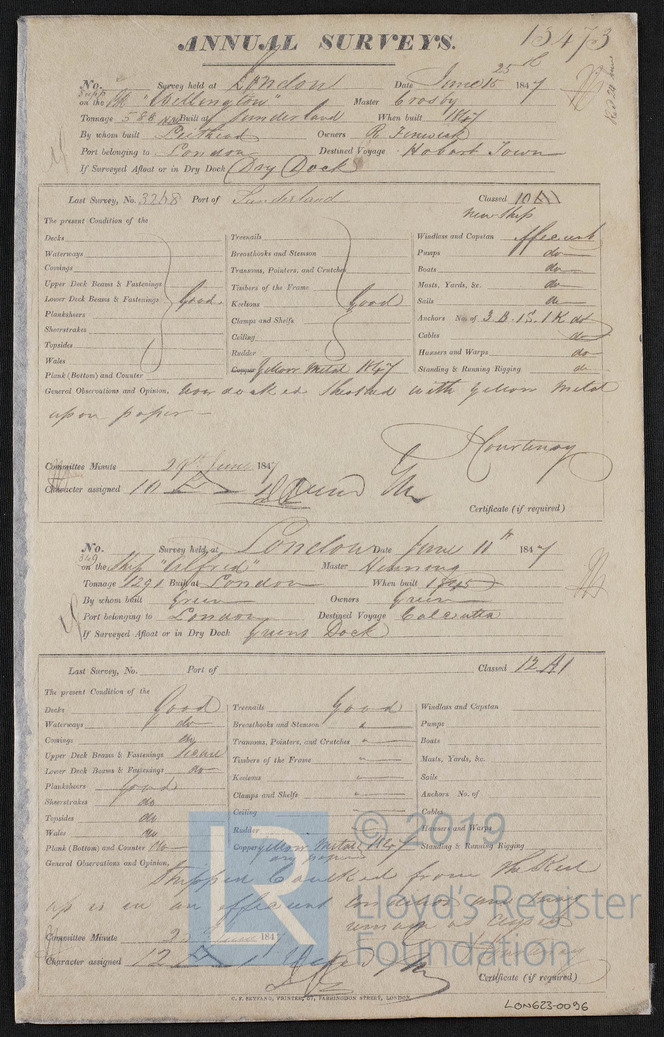 ANNUAL SURVEYS. 13473
No. Survey held at London Date June 15 25th 1847
on the "Wellington" Master Crosby
Tonnage 586 NM Built at Sunderland When built 1847
By whom built Owners R. Fenwick
Port belonging to London Destined Voyage Hobart Town
If Surveyed Afloat or in Dry Dock Dry Dock
Last Survey, No. 3248 Port of Sunderland Classed 10 A1
New Ship
The present Condition of the
Decks Treenails Windlass and Capstan efficient
Waterways Breasthooks and Stemson Pumps do
Comings Transoms, Pointers, and Crutches Boats do
Upper Deck Beams & Fastenings Timbers of the Frame Masts, Yards, &c. do
Lower Deck Beams & Fastenings Good Keelsons Good Sails do
Planksheers Clamps and Shelfs Anchors No. of 3 B. 1 S. 1 K do
Sheerstrakes Ceiling Cables do
Topsides Rudder Hawsers and Warps do
Wales Copper Yellow Metal 1847 Standing & Running Rigging do
Plank (Bottom) and Counter
General Observations and Opinion, Now docked & sheathed with yellow metal
upon paper
Courtenay
Committee Minute 29th June 1847
Character assigned 10 A1
Certificate (if required)
No. 349 Survey held, at London Date June 11th 1847
on the Ship "Alfred" Master Henning
Tonnage 1291 Built at London When built 1845
By whom built Green Owners Green
Port belonging to London Destined Voyage Calcutta
If Surveyed Afloat or in Dry Dock Greens Dock
Last Survey, No. Port of Classed 12 A1
The present Condition of the
Decks Good Treenails Good Windlass and Capstan
Waterways do Breasthooks and Stemson " Pumps
Comings do Transoms, Pointers, and Crutches " Boats
Upper Deck Beams & Fastenings Timbers of the Frame " Masts, Yards, &c.
Lower Deck Beams & Fastenings do Keelsons " Sails
Planksheers Good Clamps and Shelfs " Anchors No. of
Sheerstrakes do Ceiling Cables
Topsides do Rudder Hawsers and Warps
Wales do Copper Yellow Metal 1847 Standing & Running Rigging
Plank (Bottom) and Counter do
General Observations and Opinion, Stripped Caulked from the Keel
up is in an efficient condition and
Committee Minute 1847
Character assigned 12 A1
Certificate (if required)
C. F. SEYFANG, PRINTER, 57, FARRINGDON STREET, LONDON.
LON623-0096
LR © 2019
Lloyd's Register
Foundation